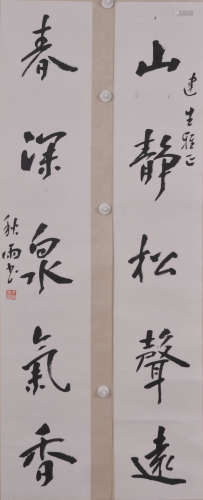 山靜松聲遠
建生雅正
春深泉氣香
秋雨書